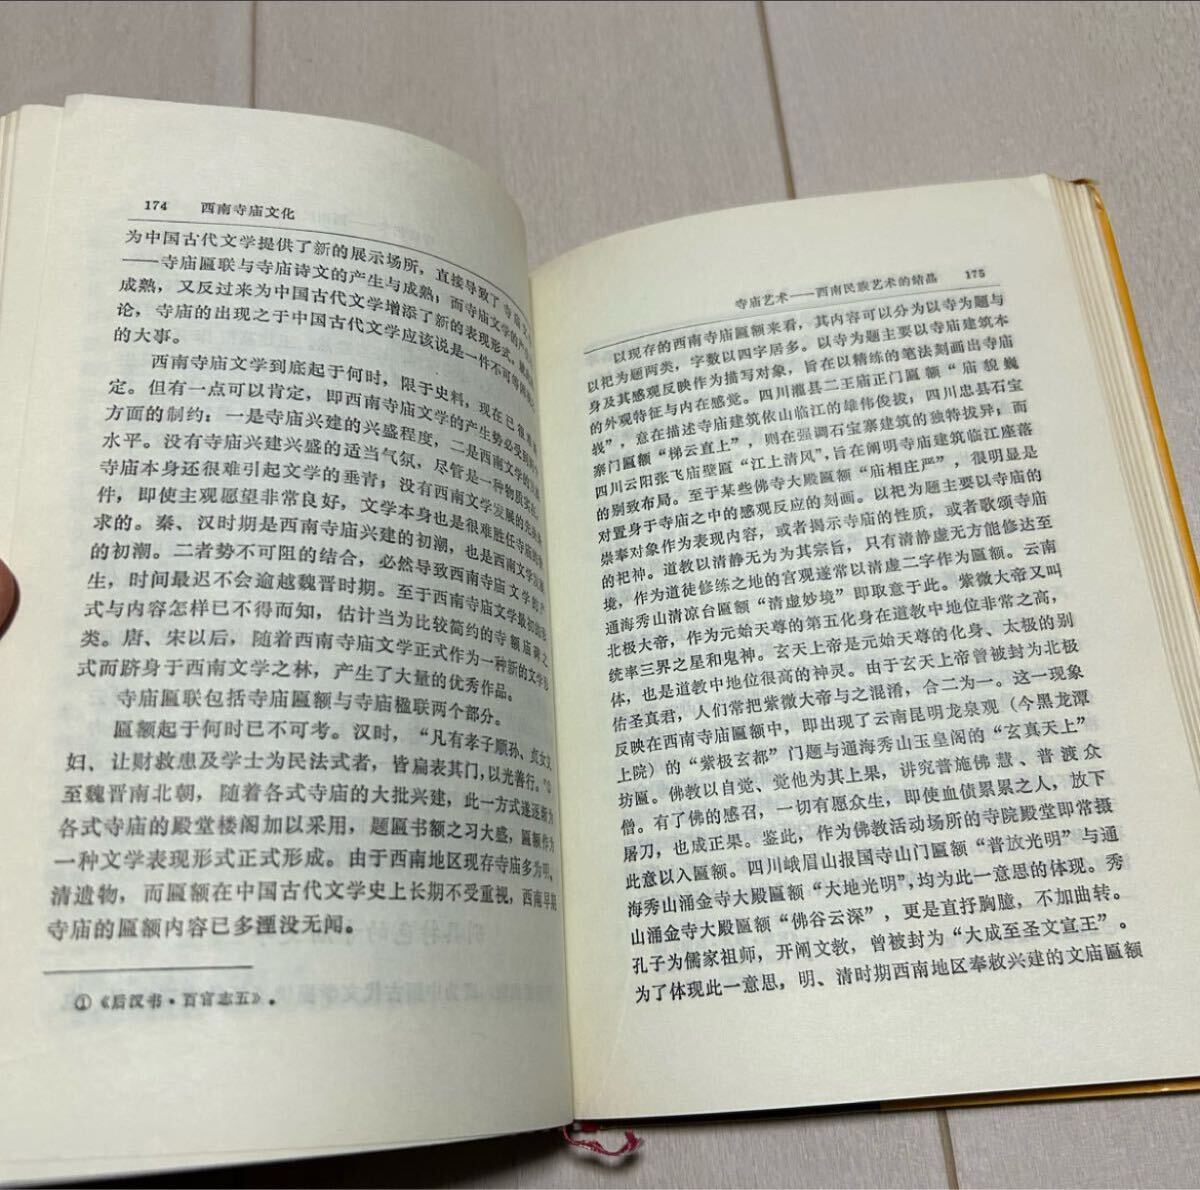 174 西南寺庙文化
为中国古代文学提供了新的展示场所，直接导致了寺庙文
——寺庙匾联与寺庙诗文的产生与成熟；而寺庙文学的产
成熟，又反过来为中国古代文学增添了新的表现形式。
论，寺庙的出现之于中国古代文学应该说是一件不可等
的大事。
西南寺庙文学到底起于何时，限于史料，现在已很难
定。但有一点可以肯定，即西南寺庙文学的产生势必受到
方面的制约：一是寺庙兴建的兴盛程度，二是西南文学的
水平。没有寺庙兴建兴盛的适当气氛，尽管是一种物质实
寺庙本身还很难引起文学的垂青；没有西南文学发展的先
件，即使主观愿望非常良好，文学本身也是很难胜任寺庙
求的。秦、汉时期是西南寺庙兴建的初潮，也是西南文学
的初潮。二者势不可阻的结合，必然导致西南寺庙文学的产
生，时间最迟不会逾越魏晋时期。至于西南寺庙文学最初的形
式与内容怎样已不得而知，估计当为比较简约的寺额庙碑之
类。唐、宋以后，随着西南寺庙文学正式作为一种新的文学形
式而跻身于西南文学之林，产生了大量的优秀作品。
寺庙匾联包括寺庙匾额与寺庙楹联两个部分。
匾额起于何时已不可考。汉时，“凡有孝子顺孙、贞女义
妇、让财救患及学士为民法式者，皆扁表其门，以光善行。”①
至魏晋南北朝，随着各式寺庙的大批兴建，此一方式遂逐渐为
各式寺庙的殿堂楼阁加以采用，题匾书额之习大盛，匾额作为
一种文学表现形式正式形成。由于西南地区现存寺庙多为明、
清遗物，而匾额在中国古代文学史上长期不受重视，西南早期
寺庙的匾额内容已多湮没无闻。
①《后汉书·百官志五》。
寺庙艺术——西南民族艺术的结晶 175
以现存的西南寺庙匾额来看，其内容可以分为以寺为题与
以祀为题两类，字数以四字居多。以寺为题主要以寺庙建筑本
身及其感观反映作为描写对象，旨在以精练的笔法刻画出寺庙
的外观特征与内在感觉。四川灌县二王庙正门匾额“庙貌巍
峩”，意在描述寺庙建筑依山临江的雄伟俊拔；四川忠县石宝
寨门匾额“梯云直上”，则在强调石宝寨建筑的独特拔异；而
四川云阳张飞庙壁匾“江上清风”，旨在阐明寺庙建筑临江座落
的别致布局。至于某些佛寺大殿匾额“庙相庄严”，很明显是
对置身于寺庙之中的感观反应的刻画。以祀为题主要以寺庙的
崇奉对象作为表现内容，或者揭示寺庙的性质，或者歌颂寺庙
的祀神。道教以清静无为为其宗旨，只有清静虚无方能修达至
境，作为道徒修练之地的宫观遂常以清虚二字作为匾额。云南
通海秀山清凉台匾额“清虚妙境”即取意于此。紫微大帝又叫
北极大帝，作为元始天尊的第五化身在道教中地位非常之高，
统率三界之星和鬼神。玄天上帝是元始天尊的化身、太极的别
体，也是道教中地位很高的神灵。由于玄天上帝曾被封为北极
佑圣真君，人们常把紫微大帝与之混淆，合二为一。这一现象
反映在西南寺庙匾额中，即出现了云南昆明龙泉观（今黑龙潭
上院）的“紫极玄都”门题与通海秀山玉皇阁的“玄真天上”
坊匾。佛教以自觉、觉他为其上果，讲究普施佛慧、普渡众
僧。有了佛的感召，一切有愿众生，即使血债累累之人，放下
屠刀，也成正果。鉴此，作为佛教活动场所的寺院殿堂即常摄
此意以入匾额。四川峨眉山报国寺山门匾额“普放光明”与通
海秀山涌金寺大殿匾额“大地光明”，均为此一意思的体现。秀
山涌金寺大殿匾额“佛谷云深”，更是直抒胸臆，不加曲转。
孔子为儒家祖师，开阐文教，曾被封为“大成至圣文宣王”。
为了体现此一意思，明、清时期西南地区奉敕兴建的文庙匾额